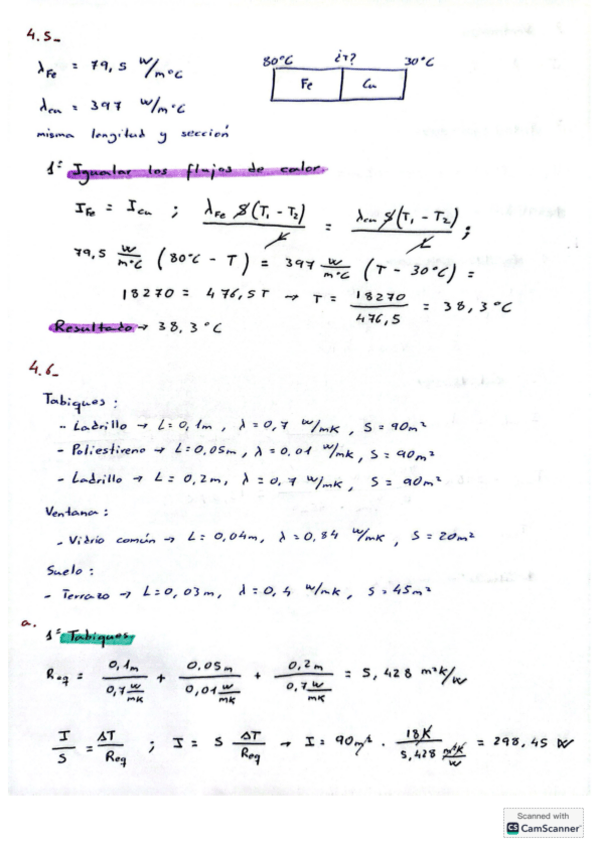 4.5-
λFe = 79,5 W/m°C
80°C ¿T? 30°C
Fe Cu
λcu = 397 W/m°C
misma longitud y sección
1º Igualar los flujos de calor
IFe = Icu ; λFe S(T1 - T2) / L = λcu S(T1 - T2) / L ;
79,5 W/m°C (80°C - T) = 397 W/m°C (T - 30°C) =
18270 = 476,5T → T = 18270 / 476,5 = 38,3°C
Resultado → 38,3°C
4.6-
Tabiques:
- Ladrillo → L=0,1m, λ=0,7 W/mK, S=90m²
- Poliestireno → L=0,05m, λ=0,01 W/mK, S=90m²
- Ladrillo → L=0,2m, λ=0,7 W/mK, S=90m²
Ventana:
- Vidrio común → L=0,04m, λ=0,84 W/mK, S=20m²
Suelo:
- Terrazo → L=0,03m, λ=0,4 W/mK, S=45m²
a.
1º Tabiques
Req = 0,1m / 0,7 W/mK + 0,05m / 0,01 W/mK + 0,2m / 0,7 W/mK = 5,428 m²K/W
I/S = ΔT/Req ; I = S ΔT/Req → I = 90m² · 18K / 5,428 m²K/W = 298,45 W
Scanned with
CS CamScanner